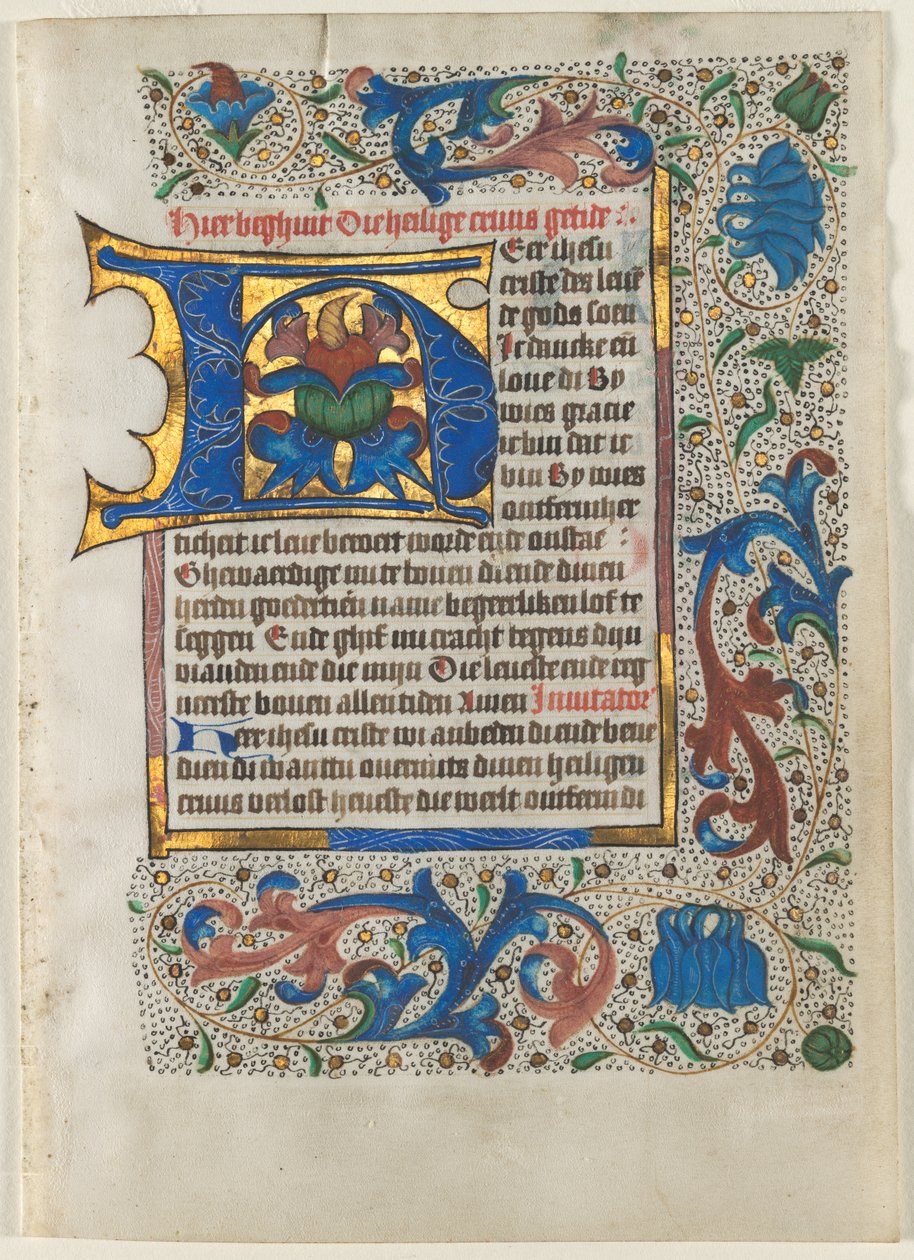 Hier beghint Die heilige cruus getide
HEer ihesu
criste des leuē
de gods soen
Ic dancke eñ
loue di By
wies gracie
ic bin dat ic
bin By wies
ontfermher
ticheit ic leue beweert worde ende onstae
Ghewaerdige mi te bouen di ende dinen
herden goedertieñ name begeerliken lof te
seggen Ende ghif mi cracht tegens dijn
vianden ende die mijn Die leueste ende reg
neerste bouen allen tiden Amen Inuitator
Heer ihesu criste wi anbeden di ende bene
dien di wanttu ouermits dinen heiligen
cruus verlost heueste die werlt ontferm di